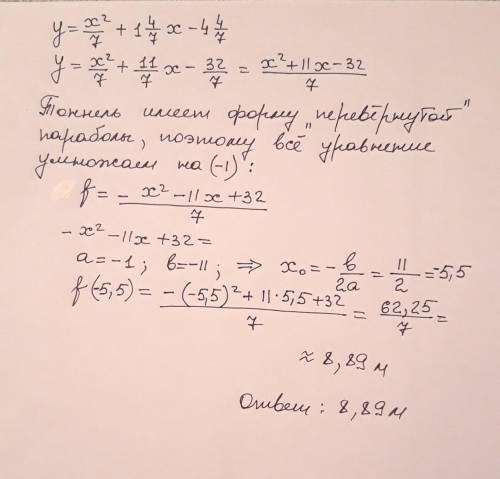 y = x²/7 + 1 4/7 x - 4 4/7
y = x²/7 + 11/7 x - 32/7 = (x² + 11x - 32)/7
Тоннель имеет форму „перевёрнутой"
параболы, поэтому всё уравнение
умножаем на (-1):
f = (- x² - 11x + 32)/7
- x² - 11x + 32 =
a = -1; в = -11; ⇒ x₀ = - в/2a = 11/2 = -5,5
f(-5,5) = (-(-5,5)² + 11·5,5 + 32)/7 = 62,25/7 =
≈ 8,89 м
Ответ: 8,89 м